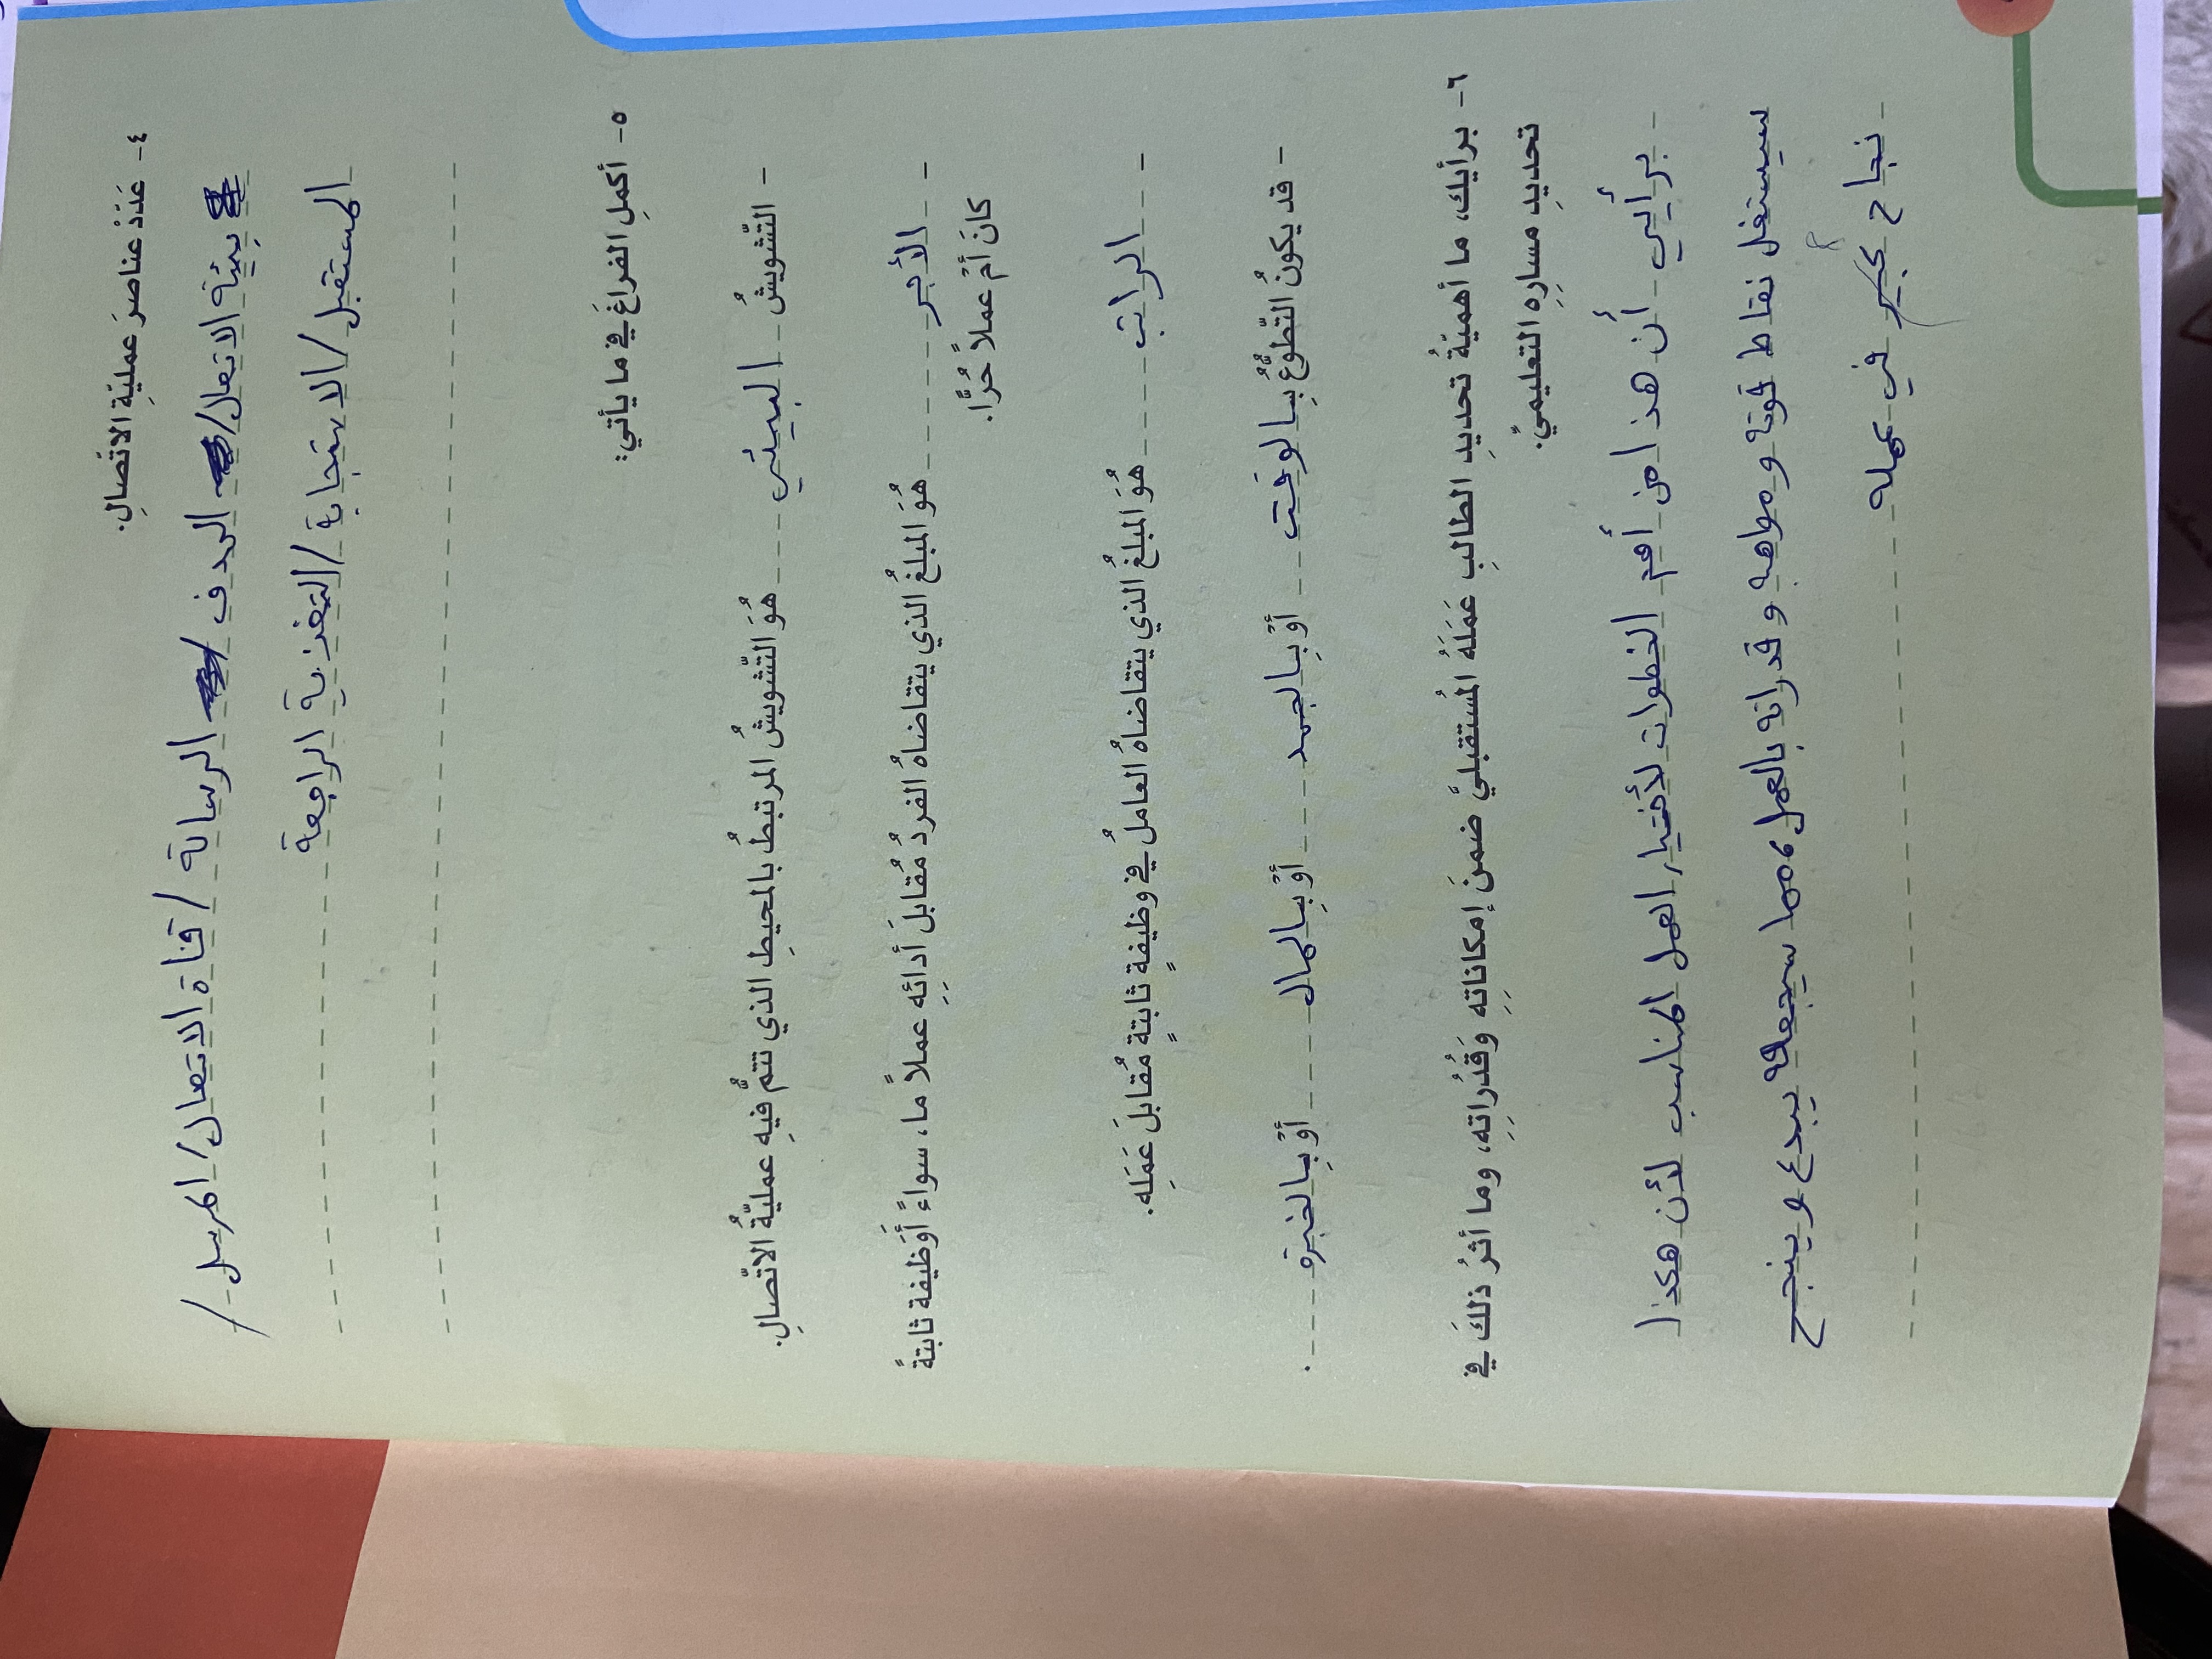 ٤- عَدِّدْ عناصرَ عمليّةِ الاتّصالِ.
بيئة الاتصال/ الهدف / الرسالة / قناة الاتصال/ المرسل /
المستقبل / الاستجابة / التغذية الراجعة
٥- أكملِ الفراغَ في ما يأتي:
- التّشويشُ البيئي هُوَ التّشويشُ المرتبطُ بالمحيطِ الذي تتمُّ فيهِ عمليّةُ الاتّصالِ.
- الأجر هُوَ المبلغُ الذي يتقاضاهُ الفردُ مُقابلَ أدائِهِ عملاً ما، سواءً أوَظيفة ثابتةً
كانَ أمْ عملاً حُرًّا.
- الراتب هُوَ المبلغُ الذي يتقاضاهُ العاملُ في وظيفةٍ ثابتةٍ مُقابلَ عَمَلِه.
- قد يكونُ التّطوّعُ بِالوقت أوْ بِالجهد أوْ بِالمال أوْ بِالخبرة .
٦- برأيك، ما أهميّةُ تحديدِ الطالبِ عَمَلَهُ المُستقبليَّ ضمنَ إمكاناتِهِ وَقُدُراتِهِ، وما أثرُ ذلكَ في
تحديدِ مسارِهِ التعليميِّ.
برأيي أن هذا من أهم الخطوات لأختيار العمل المناسب لأن هكذا
سيستغل نقاط قوته و مواهبه و قدراته بالعمل، مما سيجعله يبدع و ينجح
نجاح كبير في عمله